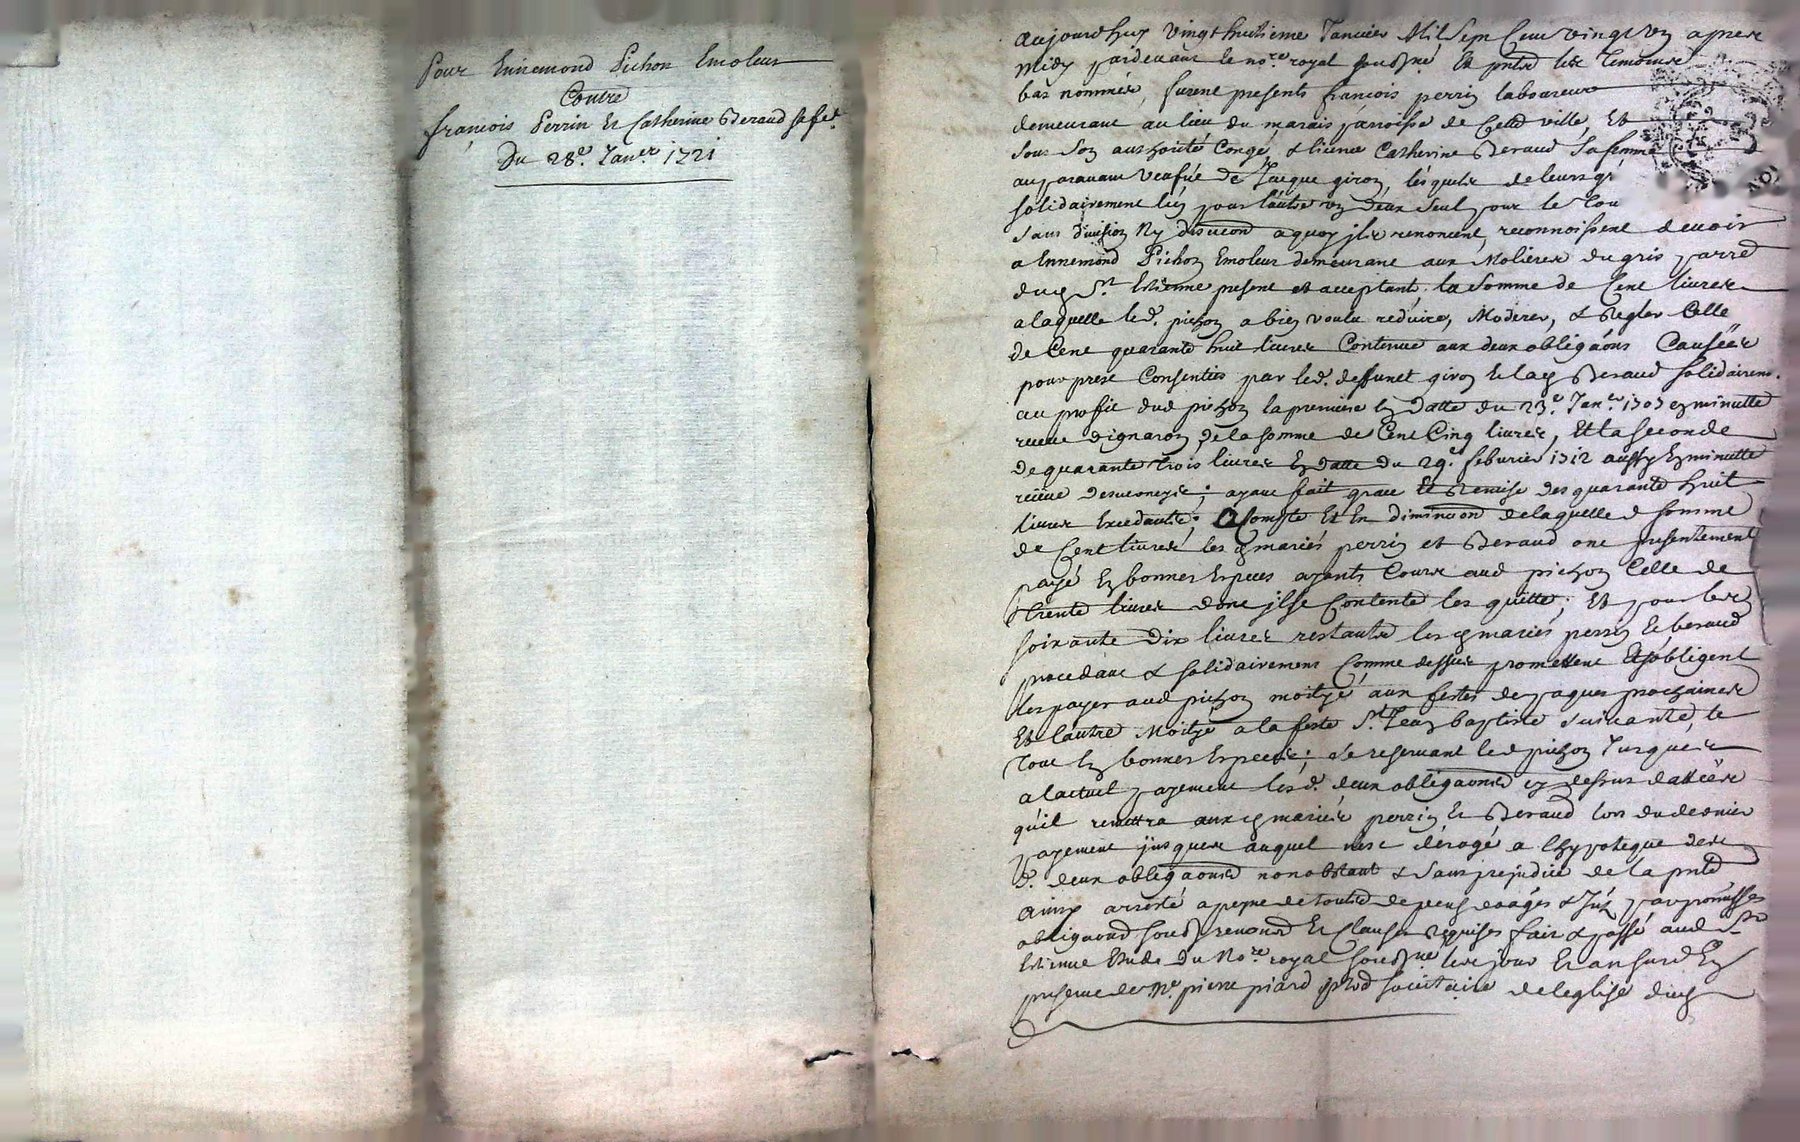 Pour Ennemond Pichon Emoleur
Contre
françois Perrin et Catherine Beraud sa fe.
Du 28e. Janer 1721
aujourdhuy vingt huitieme Janvier Mil Sept Cent vingt un apres
Midy pardevant le nore. royal sousné. et pntes les Temoins
bas nommés, furent presents françois perrin laboureur
demeurant au lieu du marais parroisse de Cette ville, Et
sous son authorité Congé, & licence Catherine Beraud sa femme
auparavant veufue de Jacque giron, lesquels de leurs gr
solidairement lun pour lautre un deux seul pour le tou
sans division Ny discuon a quoy ils renoncent, reconnoissent devoir
a Ennemond Pichon Emoleur demeurant aux Molieres du gris parre
dud St. Estienne present et acceptant, la somme de Cent livres
a laquelle led. pichon a bien voulu reduire, Moderer, & Regler Celle
de Cent quarante huit livres Contenue aux deux obligaons Causées
pour prest Consenties par led. deffunct giron et lad Beraud solidairemt.
au profit dud pichon la premiere en Datte du 23e. Janer. 1707 en minutte
receue dignaron de la somme de Cent Cinq livres, Et la seconde
de quarante trois livres en datte du 29e. feburier 1712 aussy en minutte
reçüe ; ayant fait grace et Remise des quarante huit
livres Excedants ; a Compte et En diminuon de laquelle d somme
de Cent livres, les d mariés perrin et Beraud ont presentement
payé En bonnes Especes ayants Cours aud pichon Celle de
trente livres dont il se Contente les quitte ; Et pour les
soixante dix livres restants les d mariés perrin Et beraud
procedant & solidairement Comme dessus promettent Et sobligent
les payer aud pichon moityé aux festes de paques prochaines
Et lautre Moityé a la feste St Jean baptiste suivante, le
tout En bonnes Especes ; se reservant led pichon Jusques
a lactuel payement lesd. deux obligaons cy dessus dattées
qu'il remettra aux d mariés perrin Et Beraud lors du dernier
payement jusques auquel nest dérogé a lhypoteque desd
d. deux obligaons nonobstant & sans prejudice de la pnte
ainsy arresté a peyne de touts depens domages & Inz par promisses
obligaons sousd renonons et Clauses Requises fait & passé aud St
Estienne Etude du Nore. royal sousné les jour Et an susd En
presence de Mre. pierre piard societaire de leglise dud